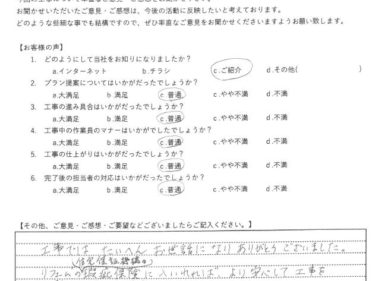 お聞かせいただいたご意見・ご感想は、今後の活動に反映したいと考えております。
どのような些細な事でも結構ですので、ぜひ率直なご意見をお聞かせくださいますようお願い致します。
【お客様の声】
1. どのようにして当社をお知りになりましたか？
a.インターネット b.チラシ c.ご紹介 d.その他( )
2. プラン提案についてはいかがだったでしょうか？
a.大満足 b.満足 c.普通 c.やや不満 d.不満
3. 工事の進み具合はいかがだったでしょうか？
a.大満足 b.満足 c.普通 c.やや不満 d.不満
4. 工事中の作業員のマナーはいかがでしたでしょうか？
a.大満足 b.満足 c.普通 c.やや不満 d.不満
5. 工事の仕上がりはいかがだったでしょうか？
a.大満足 b.満足 c.普通 c.やや不満 d.不満
6. 完了後の担当者の対応はいかがだったでしょうか？
a.大満足 b.満足 c.普通 c.やや不満 d.不満
【その他、ご意見・ご感想・ご要望などございましたらご記入ください。】
工事では たいへん お世話になり ありがとうございました。
(住宅保証機構の)
リフォームの瑕疵保険に入いれれば より安心して 工事を